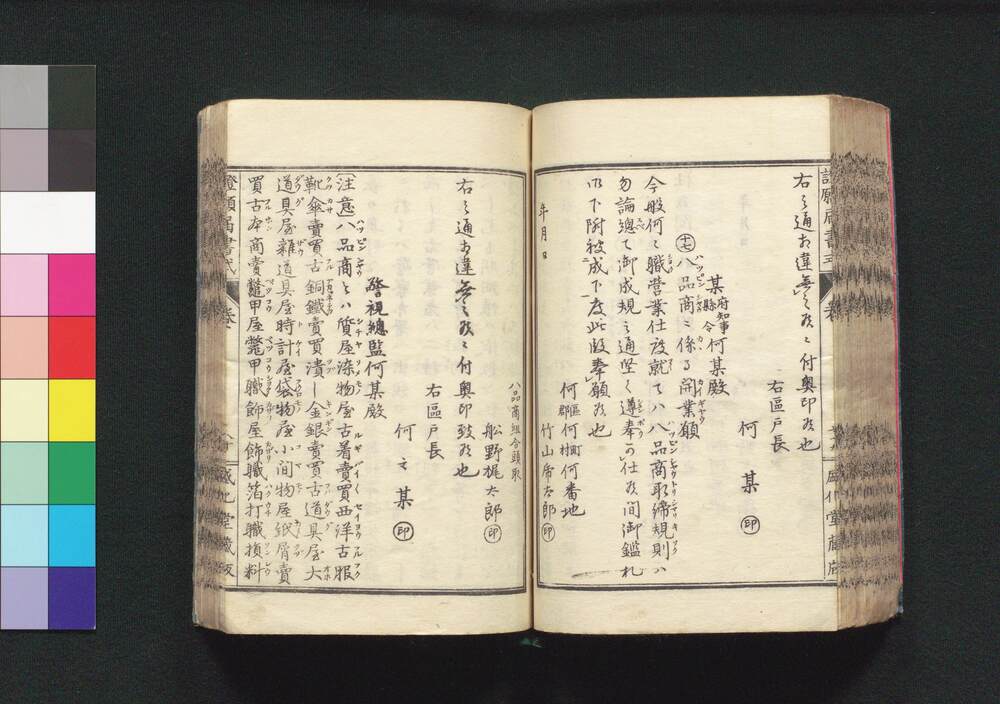 右之通相違無之候ニ付奥印也
右區戸長
何某㊞
某府知事縣令何某殿
㊆八品商ニ係る開業願
今般何之職営業仕度就てハ八品商取締規則ハ
勿論總て御成規之通堅く遵奉可仕候間御鑑札
御下附被成下度此段奉願候也
何區郡何町村何番地
年月日
竹山帝太郎㊞
八品商組合頭取
船野梶太郎㊞
右之通相違無之候ニ付奥印致候也
右區戸長
何之某㊞
警視總監何某殿
注意八品商とハ質屋染物屋古着賣買西洋古服
靴傘賣買古銅鐵賣買潰し金銀賣買古道具屋大
道具屋雜道具屋時計屋袋物屋小間物屋紙屑賣
買古本商賣鼈甲屋鼈甲職飾屋飾職箔打職損料